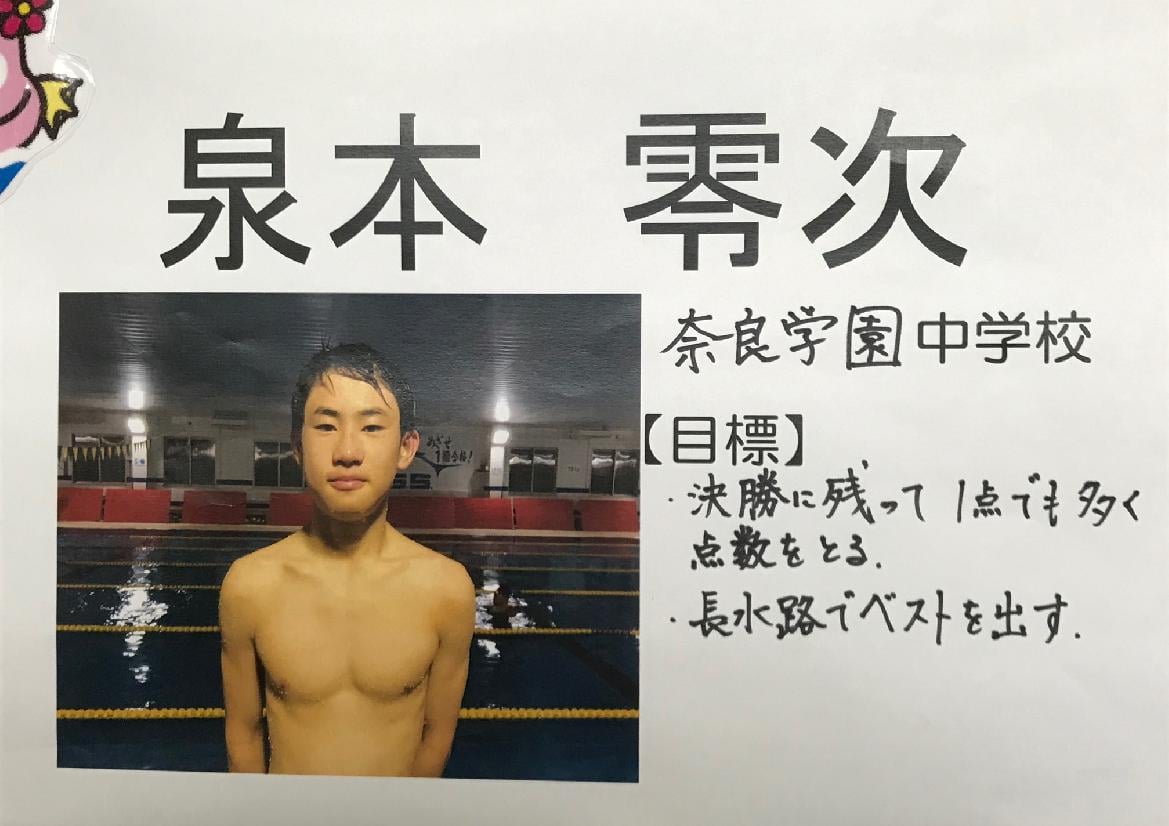 泉本 零次
奈良学園中学校
【目標】
・決勝に残って1点でも多く
点数をとる.
・長水路でベストを出す.
めざせ
SS